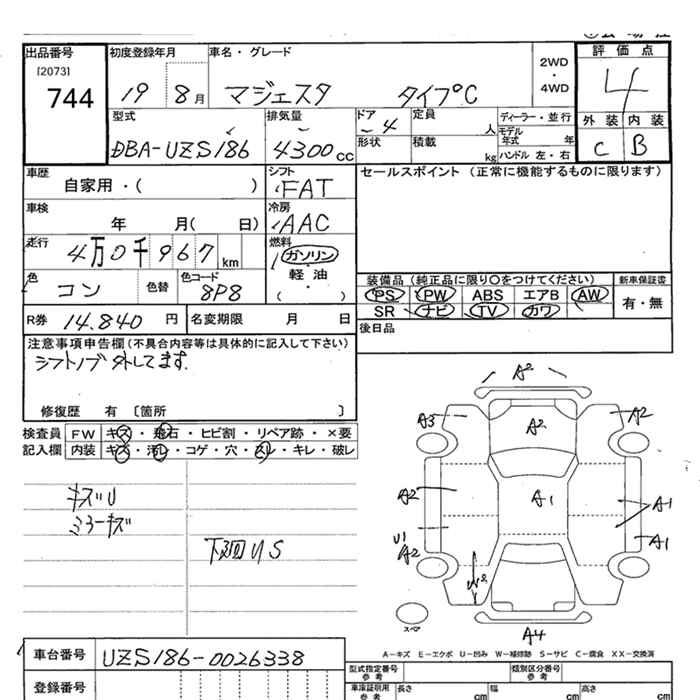 出品番号
[2073]
744
初度登録年月
19 8月
車名・グレード
マジェスタ タイプC
2WD
・
4WD
評価点
4
外装 内装
C B
型式
DBA-UZS186
排気量
4300cc
ドア
4
形状
定員
人
積載
kg
ディーラー・並行
モデル
年式 年
ハンドル 左・右
車歴
自家用・( )
シフト
FAT
セールスポイント (正常に機能するものに限ります)
車検
年 月( 日)
冷房
AAC
走行
4万0千967km
燃料
ガソリン
軽・油
( ・ )
色
コン
色替
色コード
8P8
装備品 (純正品に限り○をつけてください)
PS PW ABS エアB AW
SR ナビ TV カワ
新車保証書
有・無
R券 14.840 円
名変期限 月 日
後日品
注意事項申告欄(不具合内容等は具体的に記入して下さい)
シフトノブ外してます。
修復歴 有 〔箇所 〕
検査員 FW キズ・飛石・ヒビ割・リペア跡・×要
記入欄 内装 キズ・汚レ・コゲ・穴・スレ・キレ・破レ
キズU
ミラーキズ
下廻US
A2
A3
A2
A2
A2
A1
A1
U1
A2
A1
W2
A4
スペア
A-キズ E-エクボ U-凹み W-補修跡 S-サビ C-腐食 XX-交換済
車台番号
UZS186-0026338
登録番号
型式指定番号
類別区分番号
車庫証明用
参考
長さ cm
幅 cm
高さ cm